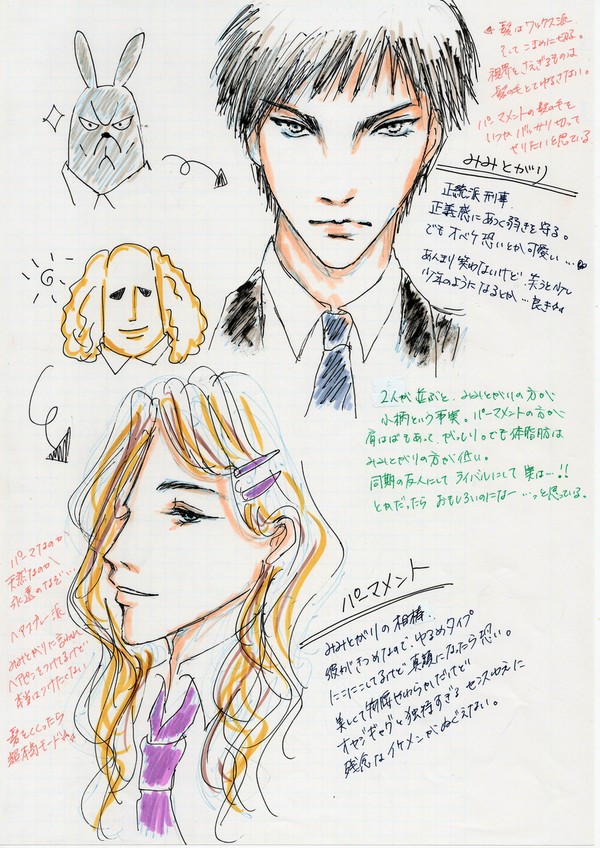 髪はワックス派
そしてこまめに切る。
視界をさえぎるものは
髪の毛とてゆるさない。
パーマメントの髪の毛を
いつかバッサリ切って
やりたいと思っている
みみとがり
正統派刑事
正義感にあつく弱きを守る。
でもオバケ恐いとか可愛い…
あんまり笑わないけど笑うと少し
少年のようになるとか…良きかな
2人が並ぶと、みみとがりの方が
小柄という事実。パーマメントの方が
肩はばもあって、がっしり。でも体脂肪は
みみとがりの方が低い。
同期の友人にしてライバルにして実は…!!
とかだったらおもしろいのになー…っと思っている。
パーマなのか
天然なのか
永遠のなぞ
ヘアスプレー派
みみとがりに言われ
ヘアピンをつけてるけど
本当はつけたくない
髪をくくったら
超本気モード
パーマメント
みみとがりの相棒。
縁がきつめなので、ゆるめタイプ
にこにこしてるけど真顔になったら恐い。
美しくて物腰やわらかだけど
オヤジギャグと独特すぎるセンスゆえに
残念なイケメンがぬぐえない。